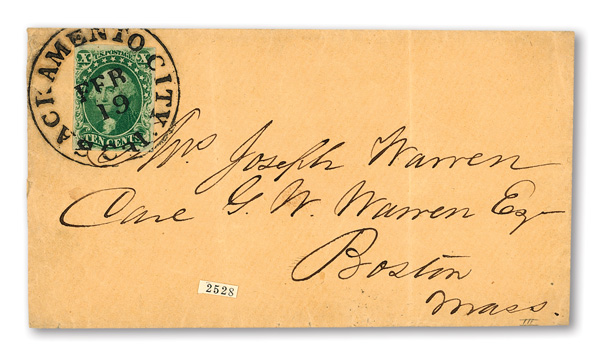 SACRAMENTO CITY.
FEB
19
X U.S. POSTAGE X
TEN CENTS
Mrs Joseph Warren
Care G. W. Warren Esq
Boston
Mass.
2528